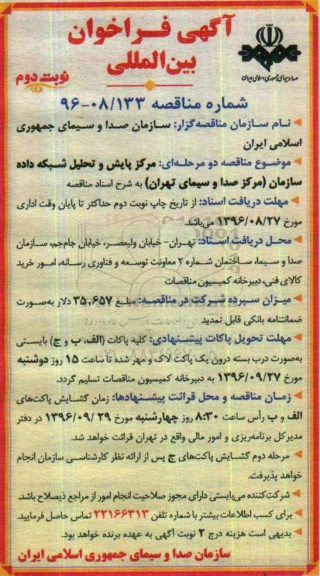 آگهی فراخوان
بین‌المللی
نوبت دوم
صدا و سیمای جمهوری اسلامی ایران
شماره مناقصه ۹۶-۰۸/۱۳۳
نام سازمان مناقصه‌گزار: سازمان صدا و سیمای جمهوری
اسلامی ایران
موضوع مناقصه دو مرحله‌ای: مرکز پایش و تحلیل شبکه داده
سازمان (مرکز صدا و سیمای تهران) به شرح اسناد مناقصه
مهلت دریافت اسناد: از تاریخ چاپ نوبت دوم حداکثر تا پایان وقت اداری
مورخ ۱۳۹۶/۰۸/۲۷ می‌باشد.
محل دریافت اسناد: تهران- خیابان ولیعصر، خیابان جام‌جم، سازمان
صدا و سیما، ساختمان شماره ۲ معاونت توسعه و فناوری رسانه، امور خرید
کالای فنی، دبیرخانه کمیسیون مناقصات
میزان سپرده شرکت در مناقصه: مبلغ ۳۵,۶۵۷ دلار به‌صورت
ضمانتنامه بانکی قابل تمدید
مهلت تحویل پاکات پیشنهادی: کلیه پاکات (الف، ب و ج) بایستی
به‌صورت درب بسته درون یک پاکت لاک و مهر شده تا ساعت ۱۵ روز دوشنبه
مورخ ۱۳۹۶/۰۹/۲۷ به دبیرخانه کمیسیون مناقصات تسلیم گردد.
زمان مناقصه و محل قرائت پیشنهادها: زمان گشایش پاکت‌های
الف و ب رأس ساعت ۸:۳۰ روز چهارشنبه مورخ ۱۳۹۶/۰۹/۲۹ در دفتر
مدیرکل برنامه‌ریزی و امور مالی واقع در تهران قرائت خواهد شد.
مرحله دوم گشایش پاکت‌های ج پس از ارائه نظر کارشناسی سازمان انجام
خواهد پذیرفت.
شرکت‌کننده می‌بایستی دارای مجوز صلاحیت انجام امور از مراجع ذیصلاح باشد.
برای کسب اطلاعات بیشتر با شماره تلفن ۲۲۱۶۶۳۱۳ تماس حاصل فرمایید.
بدیهی است هزینه درج ۲ نوبت آگهی به عهده برنده خواهد بود.
سازمان صدا و سیمای جمهوری اسلامی ایران